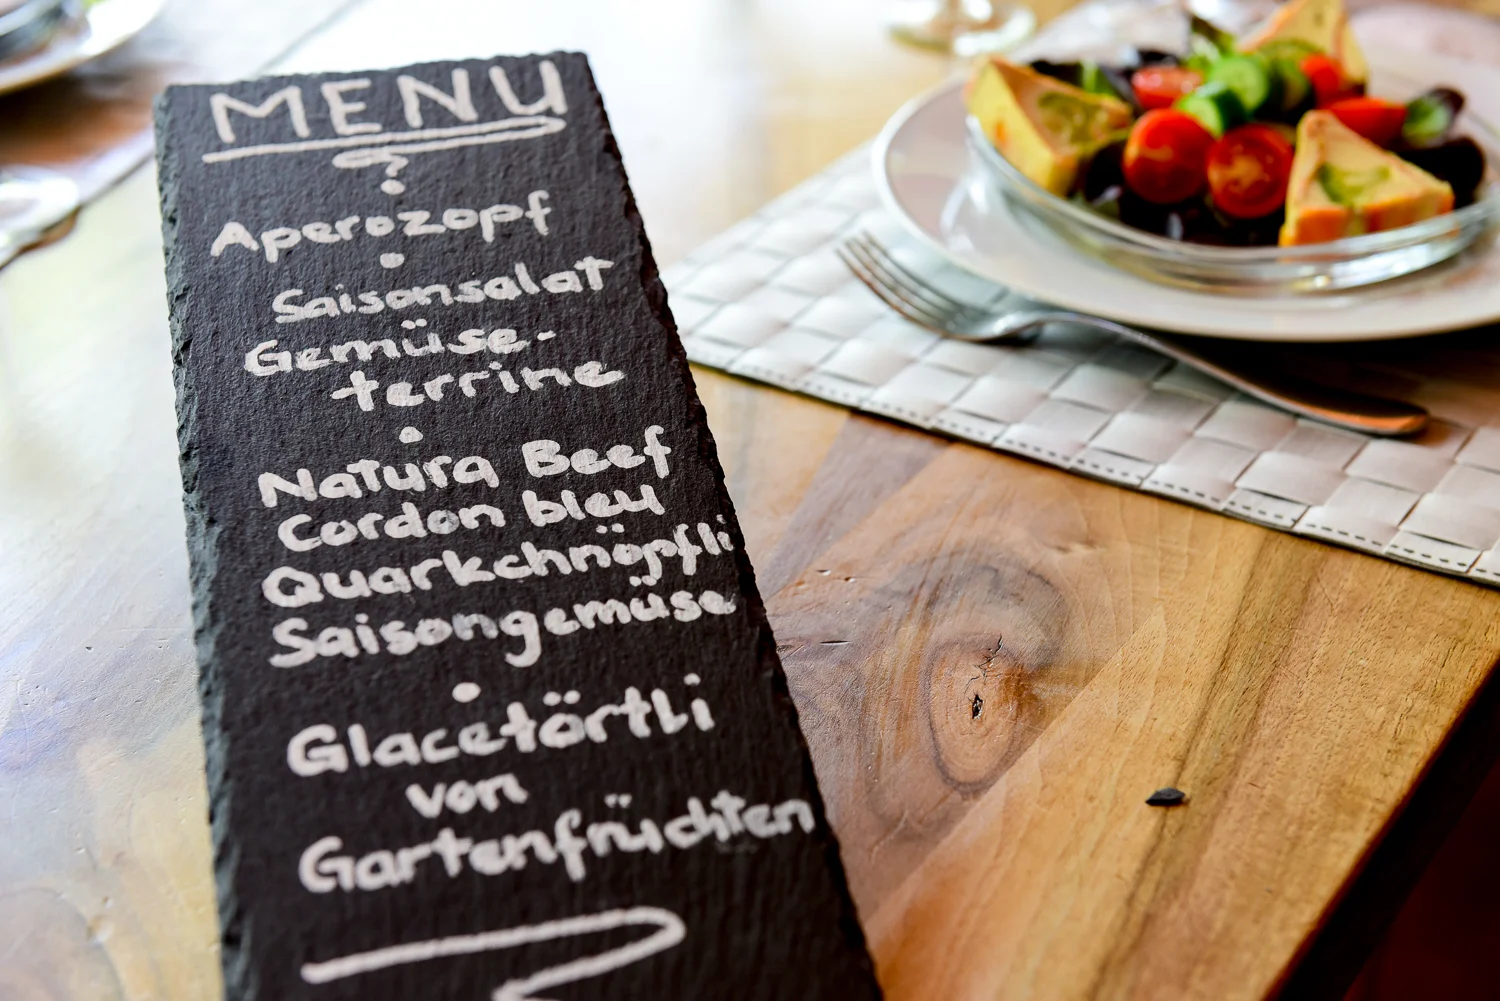 MENU
Aperozopf
Saisonsalat
Gemüse-
terrine
Natura Beef
Cordon bleu
Quarkchnöpfli
Saisongemüse
Glacetörtli
von
Gartenfrüchten